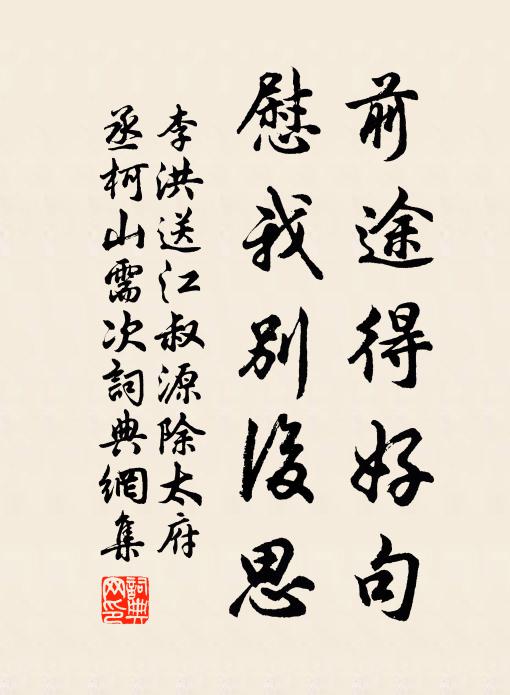 前途得好句
慰我別後思
李洪送江叔源除太府
丞柯山需次詞典網集
詞典網印